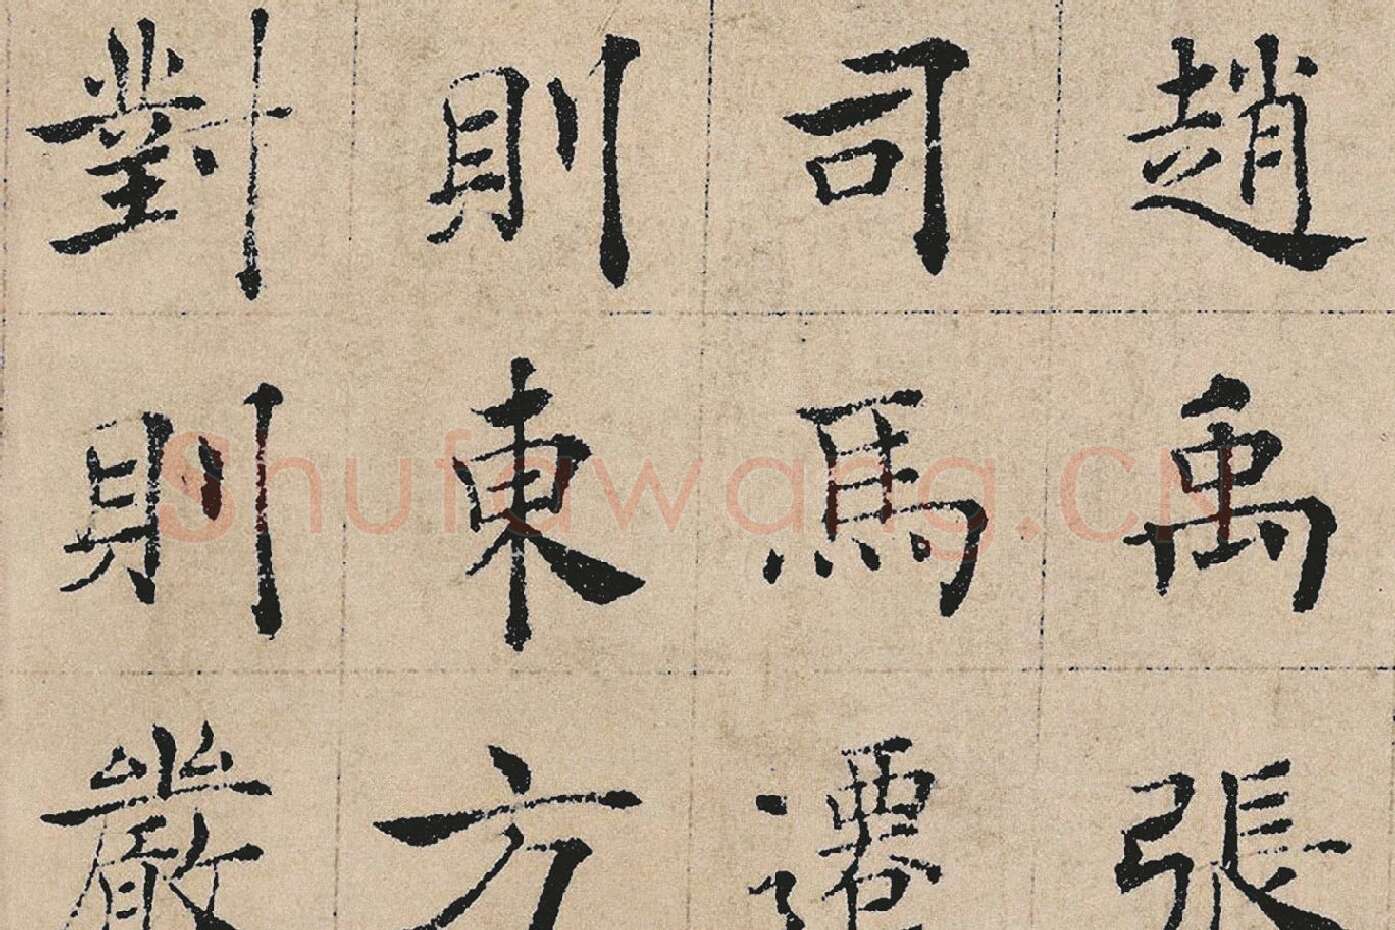 趙禹張
司馬遷
則東方
對則嚴
Shufawang.CN